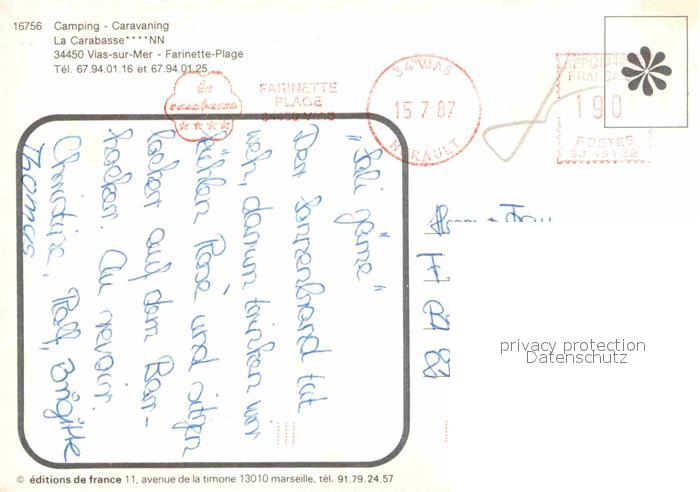 16756 Camping - Caravaning
La Carabasse****NN
34450 Vias-sur-Mer - Farinette-Plage
Tél. 67.94.01.16 et 67.94.01.25
la
carabasse
****
FARINETTE
PLAGE
34450 VIAS
34 VIAS
15 7 87
HERAULT
REPUBLIQUE
FRANCAISE
190
POSTES
SJ 15122
"Sali zäme"
Der Sonnenbrand tut
weh, darum trinken wir
kühlen Rosé und sitzen
locker auf dem Bar-
hocker. Au revoir.
Christine, Ralf, Brigitte
Thomas
privacy protection
Datenschutz
© éditions de france 11, avenue de la timone 13010 marseille, tél. 91.79.24.57